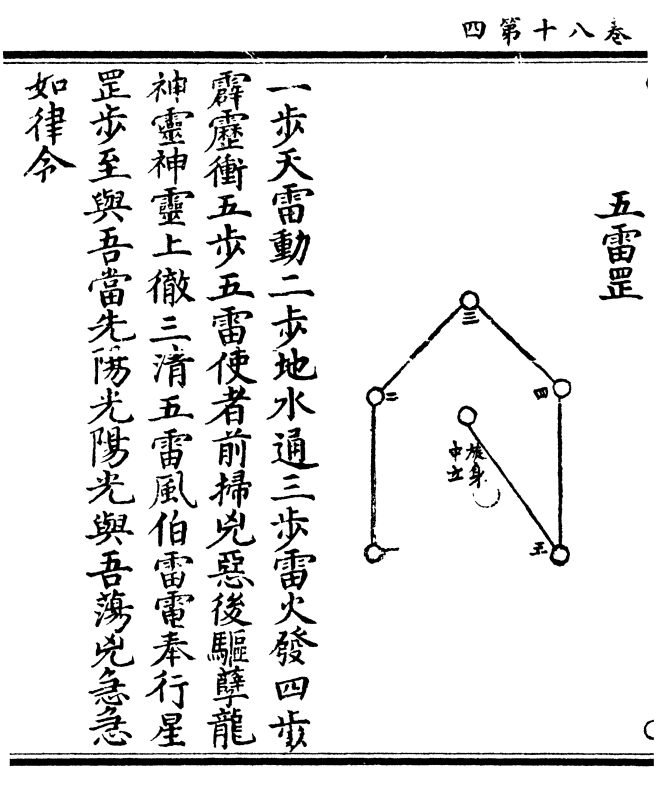 卷八十第四
五雷罡
三
四
二
旋身
中立
五
一
一步天雷動二步地水通三步雷火發四步
霹靂衝五步五雷使者前掃兇惡後驅孽龍
神靈神靈上徹三清五雷風伯雷電奉行星
罡步至與吾當先陽光陽光與吾蕩兇急急
如律令